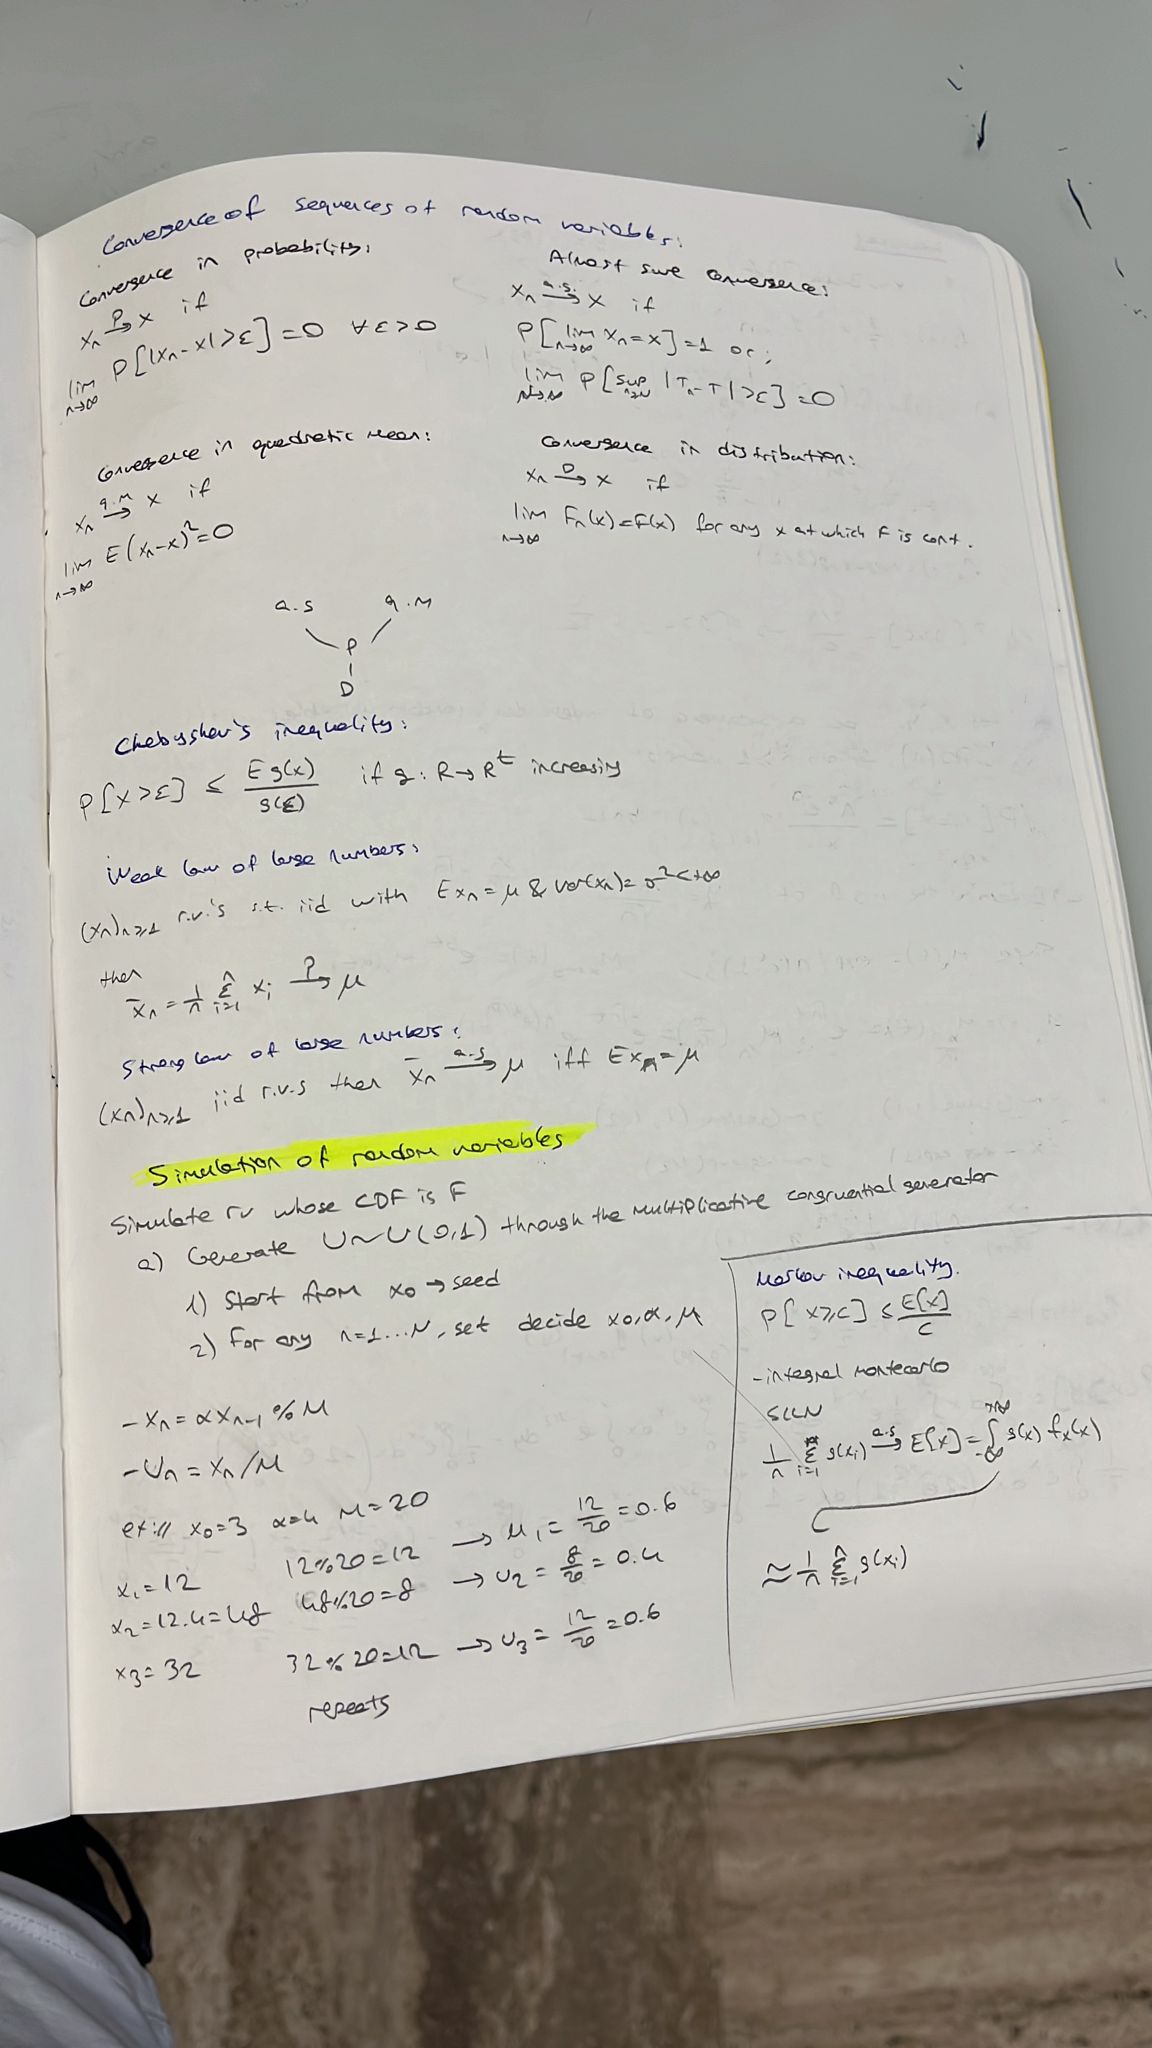 Convergence of sequences of random variables:
Convergence in probability:
Xn →P X if
lim n→∞ P[|Xn-X|>ε]=0 ∀ε>0
Almost sure convergence:
Xn →a.s. X if
P[lim n→∞ Xn=X]=1 or;
lim N→∞ P[sup n≥N |Tn-T|>ε]=0
Convergence in quadratic mean:
Xn →q.m X if
lim n→∞ E(Xn-X)²=0
Convergence in distribution:
Xn →D X if
lim n→∞ Fn(x)=F(x) for any x at which F is cont.
a.s q.m
P
D
Chebyshev's inequality:
P[X>ε] ≤ E g(x) / g(ε) if g: R→R⁺ increasing
Weak law of large numbers:
(Xn)n≥1 r.v.'s s.t. iid with EXn=μ & var(Xn)=σ²<+∞
then
X̄n = 1/n Σ i=1 n Xi →P μ
Strong law of large numbers:
(Xn)n≥1 iid r.v.s then X̄n →a.s μ iff EXn=μ
Simulation of random variables
Simulate rv whose CDF is F
a) Generate U~U(0,1) through the multiplicative congruential generator
1) Start from x0 → seed
2) For any n=1...N, set decide x0, α, M
- Xn = αXn-1 % M
- Un = Xn/M
ex:// x0=3 α=4 M=20
x1=12 12%20=12 → μ1 = 12/20 = 0.6
x2=12.4=48 48%20=8 → u2 = 8/20 = 0.4
x3=32 32%20=12 → u3 = 12/20 = 0.6
repeats
Markov inequality.
P[X≥C] ≤ E[X]/C
- integral montecarlo
SLLN
1/n Σ i=1 n g(xi) →a.s E[X] = ∫ -∞ +∞ g(x) fx(x)
≈ 1/n Σ i=1 n g(xi)